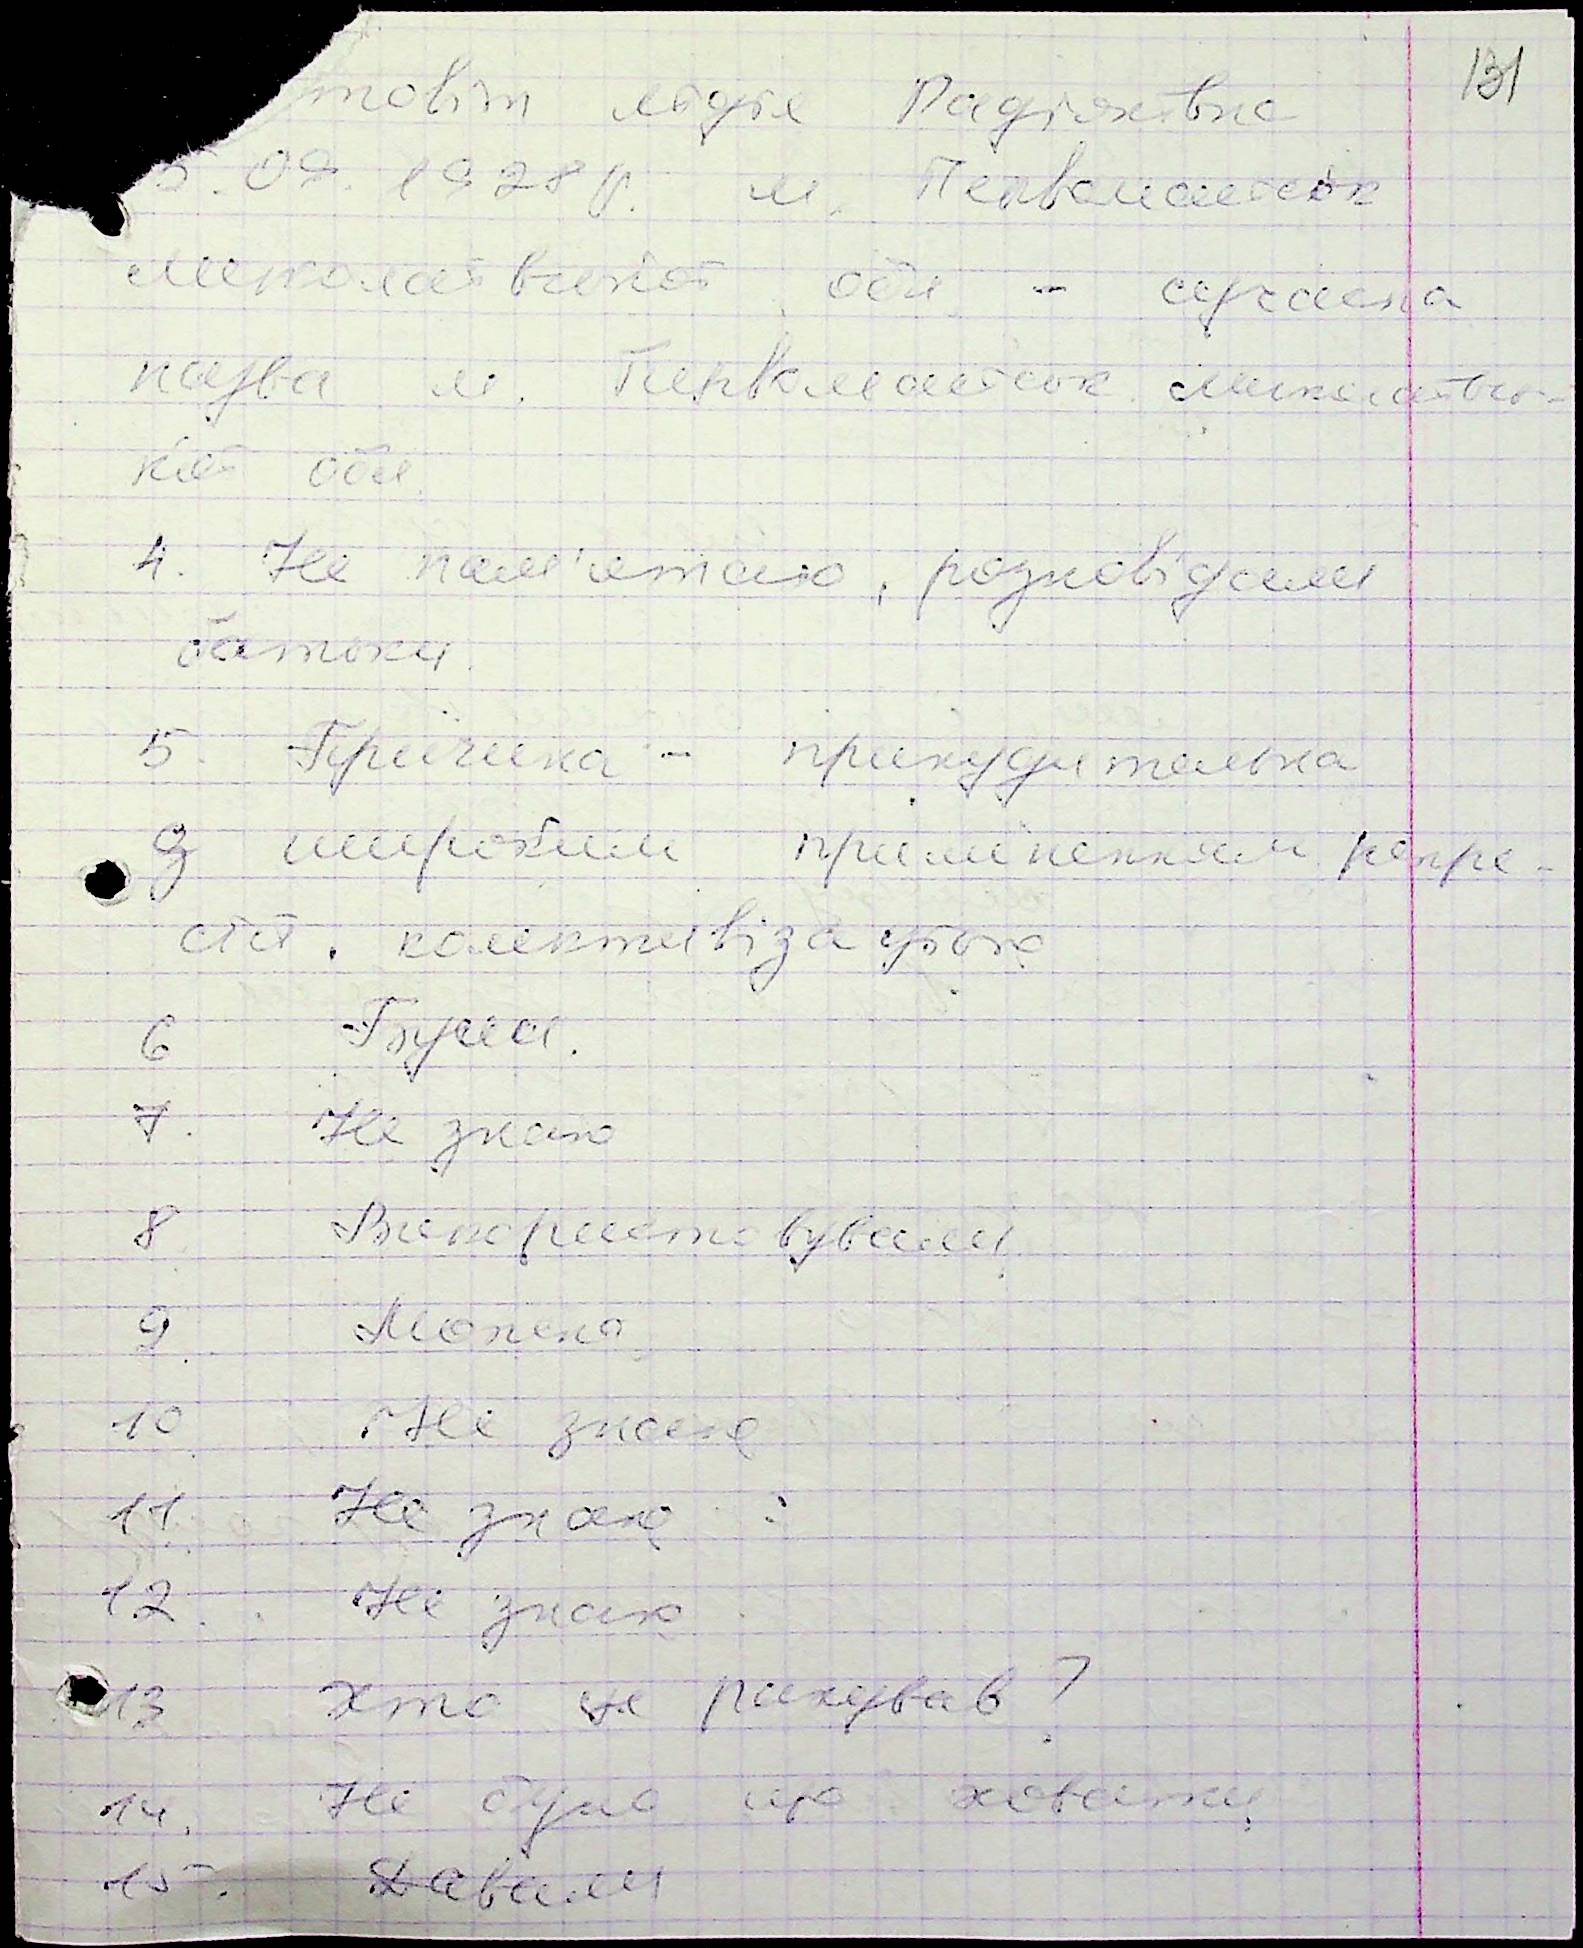 131
товіт Лідія Радіонівна
5.09.1928 р. м. Первомайськ
Миколаївської обл. - сучасна
назва м. Первомайськ Миколаївсь-
кої обл.
4. Не пам'ятаю, розповідали
батьки.
5. Причина - принудительна
з широким приміненням репре-
сій. колективізацією
6 Були.
7. Не знаю
8. Використовували
9. Можено
10. Не знаю
11. Не знаю
12. Не знаю
13 Хто це рахував?
14. Не було що ховати,
15. Давали